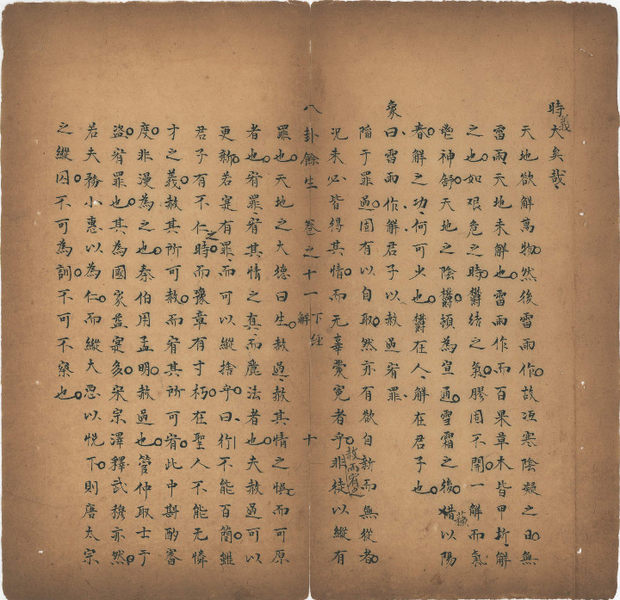 時義大矣哉
天地欲解萬物然後雷雨作故冱寒陰凝之日無
雷雨天地未解也雷雨作而百果草木皆甲拆解
之也如艱危之時欝結之氣膠固不開一解而氣
鬯神舒天地之陰欝頓為宣通雪霜之後借以陽
春解之功何可少也欝在人解在君子也
象曰雷雨作解君子以赦過宥罪
陷于罪過固有以自取然亦有欲自新而無從者
況未必皆得其情而无辜蒙冤者乎非徒以縱有
赦而宥過
八卦餘生 卷之十一 下經 解 十
罪也天地之大德曰生赦過赦其情之悞而可原
者也宥罪宥其情之真而麗法者也夫赦過可以
更新若寔有罪而可以縱捨乎曰行不能百簡雖
君子有不仁之時而豫章有寸朽在聖人不能无憐
才之義赦其所可赦而宥其所可宥此中斟酌審
度非漫為之也秦伯用孟明赦過也管仲取士于
盜宥罪也其為國家益寔多宋宗澤釋武穆亦然
若夫務小惠以為仁而縱大惡以悅下則唐太宗
之縱囚不可為訓不可不察也